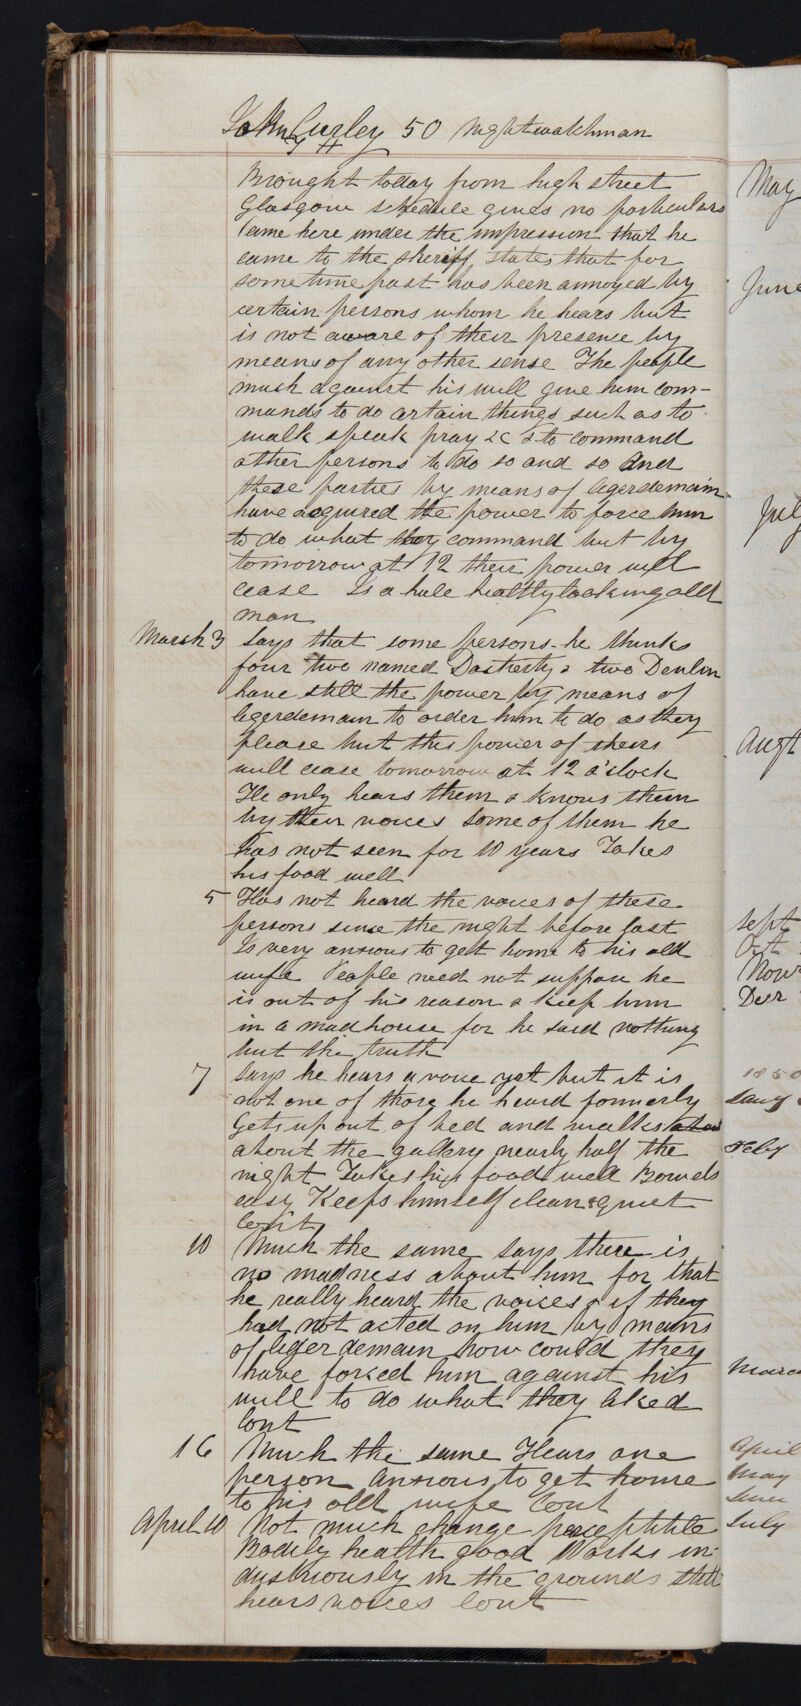 John Curley 50 nightwatchman
Brought today from high street
Glasgow schedule gives no particulars
Came here under the impression that he
came to the sheriff states that for
sometime past has been annoyed by
certain persons whom he hears but
is not aware of their presence by
means of any other sense The people
much against his will give him com-
mands to do certain things such as to
walk speak pray &c & to command
other persons to do so and so and
these parties by means of legerdemain
have acquired the power to force him
to do what they command but by
tomorrow at 12 their power will
cease Is a hale healthy looking old
man
March 3 Says that some persons - he thinks
four two named Docherty & two Devlin
have still the power by means of
legerdemain to order him to do as they
please but this power of theirs
will cease tomorrow at 12 o'clock
He only hears them & knows them
by their voices some of them he
has not seen for 10 years Takes
his food well
5 Has not heard the voices of these
persons since the night before last
Is very anxious to get home to his old
wife People need not suppose he
is out of his reason & keep him
in a madhouse for he said nothing
but the truth
7 Says he hears a voice yet but it is
not one of those he heard formerly
Gets up out of bed and walks
about the gallery nearly half the
night Takes his food well Bowels
easy Keeps himself clean & quiet
Cont
10 Much the same says there is
no madness about him for that
he really heard the voices & if they
had not acted on him by means
of legerdemain how could they
have forced him against his
will to do what they liked
Cont
16 Much the same Hears one
person anxious to get home
to his old wife Cont
April 10 Not much change perceptible
Bodily health good Works in-
dustriously in the grounds still
hears voices Cont
May
June
July
Augt
Sept
Oct
Novr
Decr
1850
Jany
Feby
March
April
May
June
July